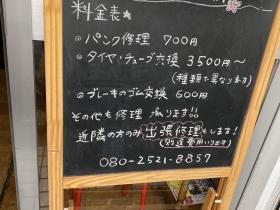 料金表
◎パンク修理 700円
◎タイヤ・チューブ交換 3500円〜
(種類で異なります)
◎ブレーキのゴム交換 600円
その他も修理 承ります!!
近隣の方のみ 出張修理もします!
(別途費用いります)
080-2521-8857